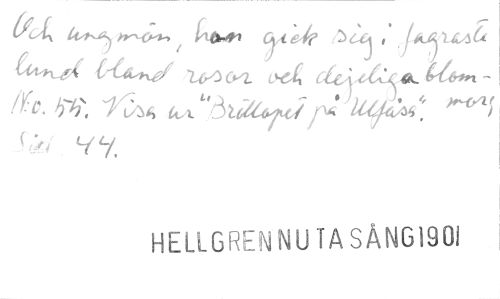 Och ungmön, hon gick sig i fagraste
lund bland rosor och dejeliga blom-
No. 55. Visa ur "Bröllopet på Ulfåsa". mor,
Sid. 44.
HELLGREN NUTA SÅNG 1901